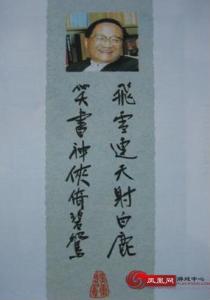 飛雪連天射白鹿
笑書神俠倚碧鴛
凤凰网
游戏中心